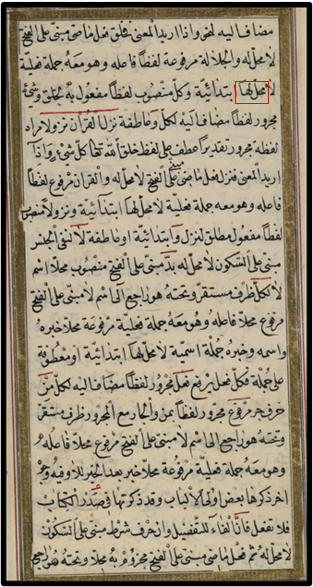 مضاف اليه لحق واذا اريد المعنى فخلق فعل ماض مبنى على الفتح
لا محل له والجلالة مرفوعة لفظا فاعله وهو معه جملة فعلية
لا محل لها ابتدائية وكل منصوب لفظا مفعول به لخلق وشئ
مجرور لفظا مضاف اليه لكل وعاطفة نزل القرآن نزولا مراد
لفظه مجرور تقديرا عطف على لفظ خلق الله تعالى كل شئ واذا
اريد المعنى فنزل فعل ماض مبنى على الفتح لا محل له والقرآن مرفوع لفظا
فاعله وهو معه جملة فعلية لا محل لها ابتدائية ونزولا منصوب
لفظا مفعول مطلق لنزل وابتدائية او عاطفة لا لنفى الجنس
مبنى على السكون لا محل له بد مبنى على الفتح منصوب محلا اسم
لا لكل ظرف مستقر وتحته هو راجع الى اسم لا مبنى على الفتح
مرفوع محلا فاعله وهو معه جملة فعلية مرفوعة محلا خبره
واسمه وخبره جملة اسمية لا محل لها ابتدائية او معطوفة
على جملة فكل فعل يرفع فعل مجرور لفظا مضاف اليه لكل من
حرف جر مرفوع مجرور لفظا بمن والجار مع المجرور ظرف مستقر
وتحته هو راجع الى اسم لا مبنى على الفتح مرفوع محلا فاعله
وهو معه جملة فعلية مرفوعة محلا خبر بعد الخبر للا وفيه وجوه
اخر ذكرها بعض اولى الالباب وقد ذكرتها فى صدر الكتاب
فلا تغفل فان الفاء للتفصيل وان حرف شرط مبنى على السكون
لا محل له تم فعل ماض مبنى على الفتح مجزوم به محلا وتحته هو راجع